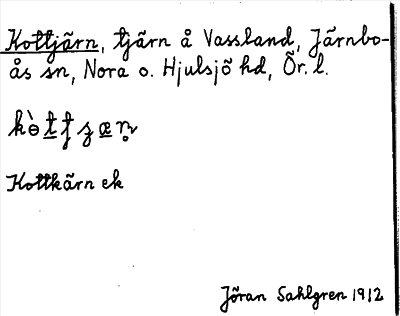 Kottjärn, tjärn å Vassland, Järnbo-
ås sn, Nora o. Hjulsjö hd, Ör. l.
Kottkärn ek
Jöran Sahlgren 1912